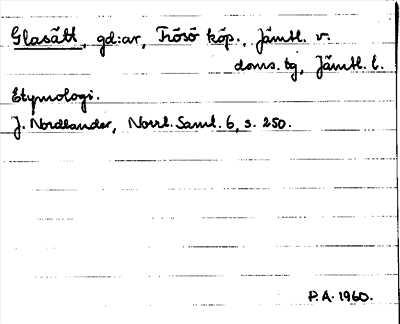 Glasätt, gd:ar, Frösö köp., Jämtl. v.
doms. tg, Jämtl. l.
Etymologi.
J. Nordlander, Norrl. Saml. 6, s. 250.
P.A. 1960.